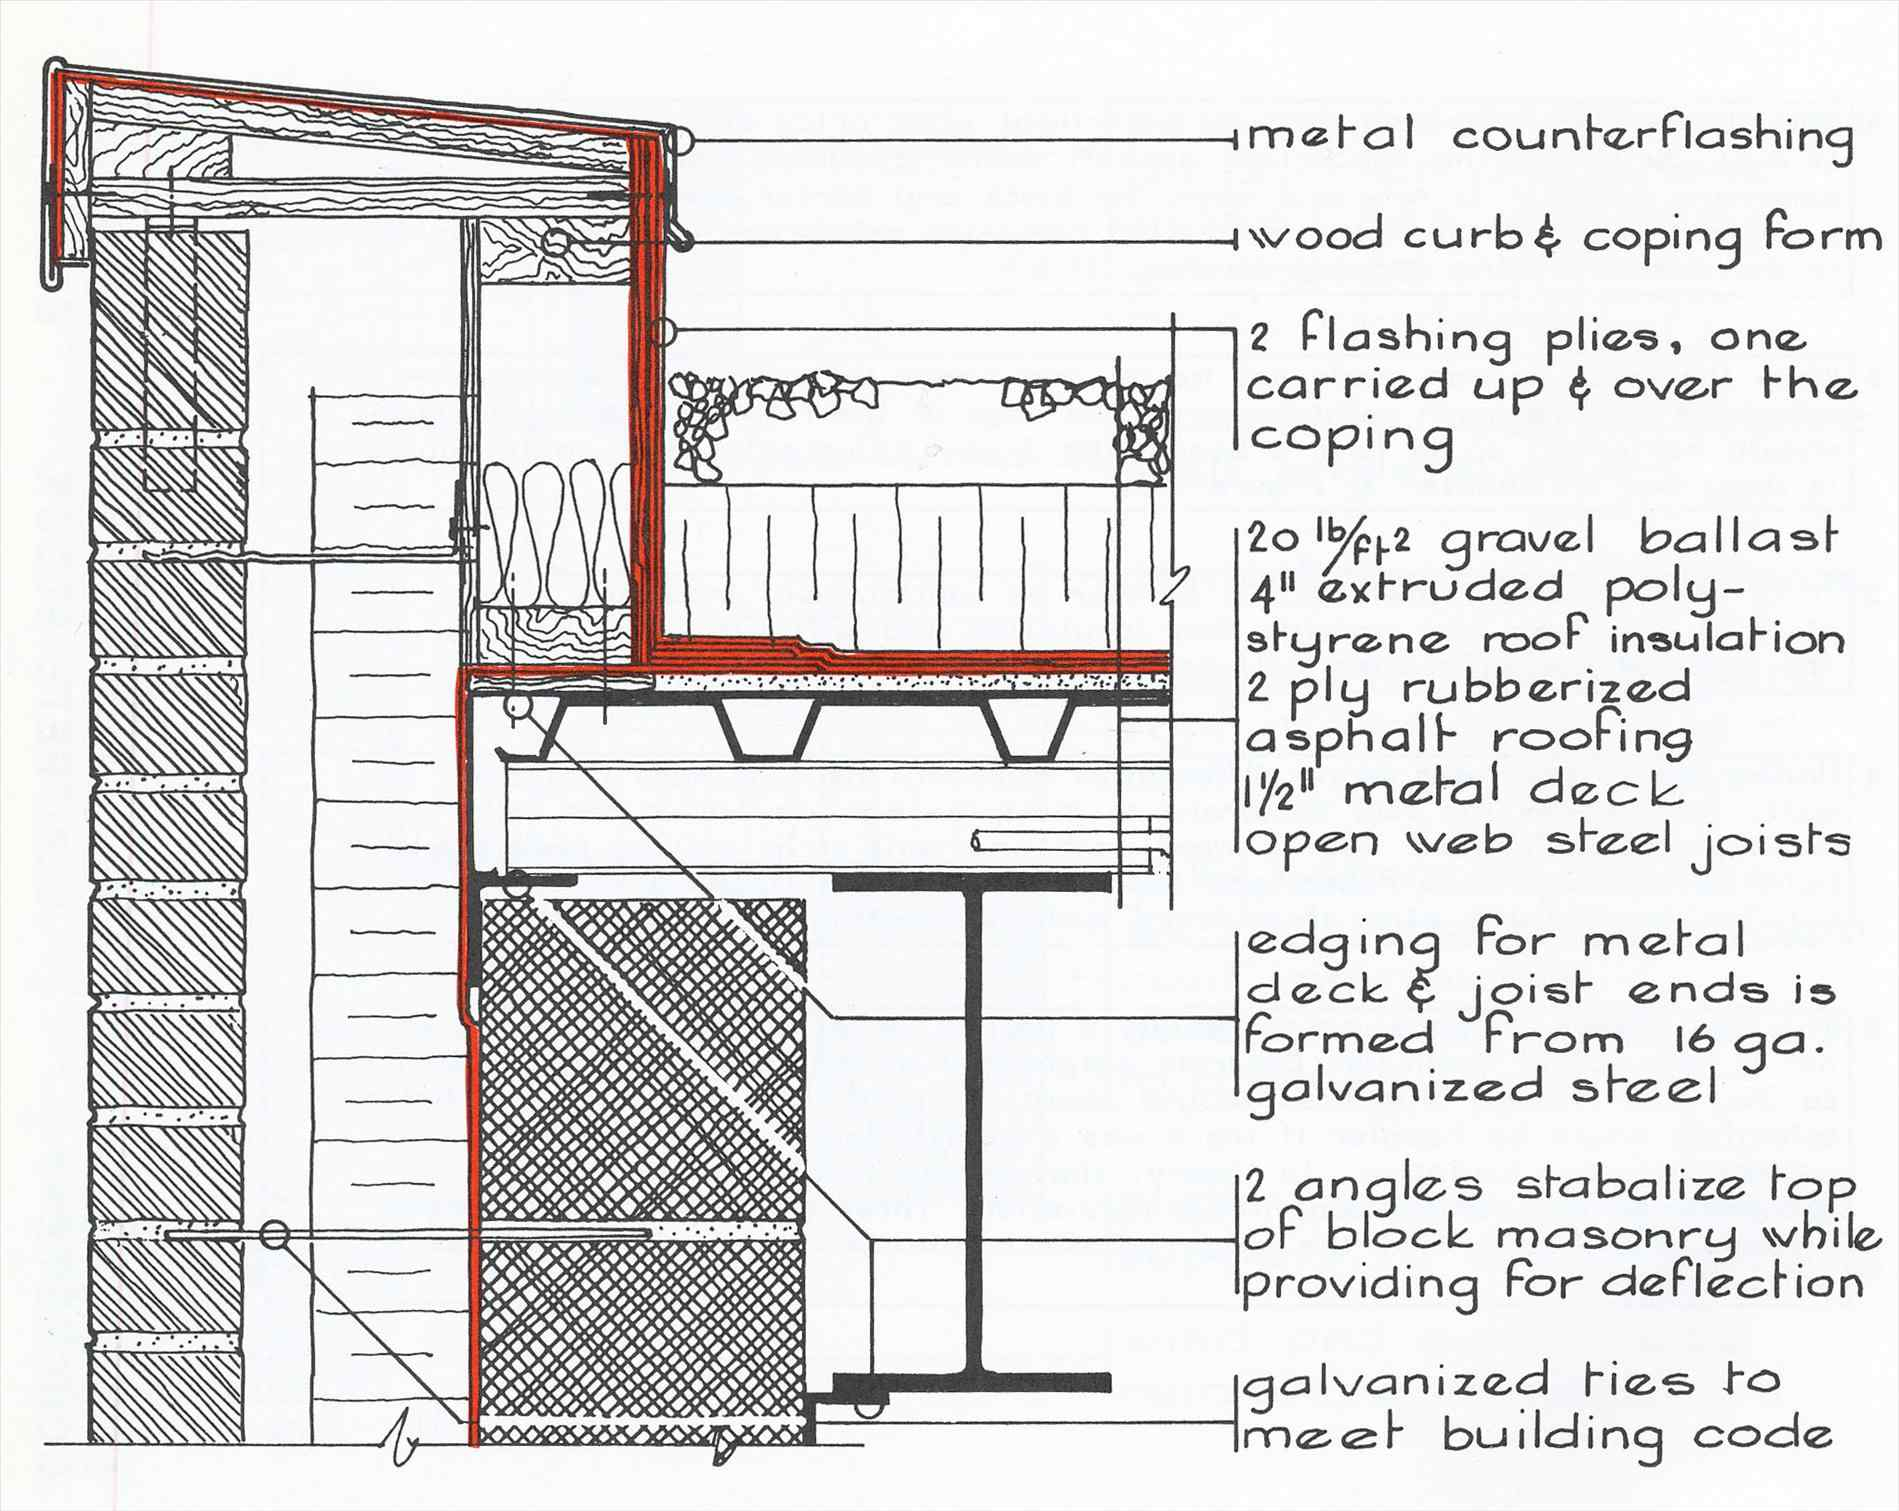 metal counterflashing
wood curb & coping form
2 flashing plies, one
carried up & over the
coping
20 lb/ft2 gravel ballast
4" extruded poly-
styrene roof insulation
2 ply rubberized
asphalt roofing
1½" metal deck
open web steel joists
edging for metal
deck & joist ends is
formed from 16 ga.
galvanized steel
2 angles stabalize top
of block masonry while
providing for deflection
galvanized ties to
meet building code